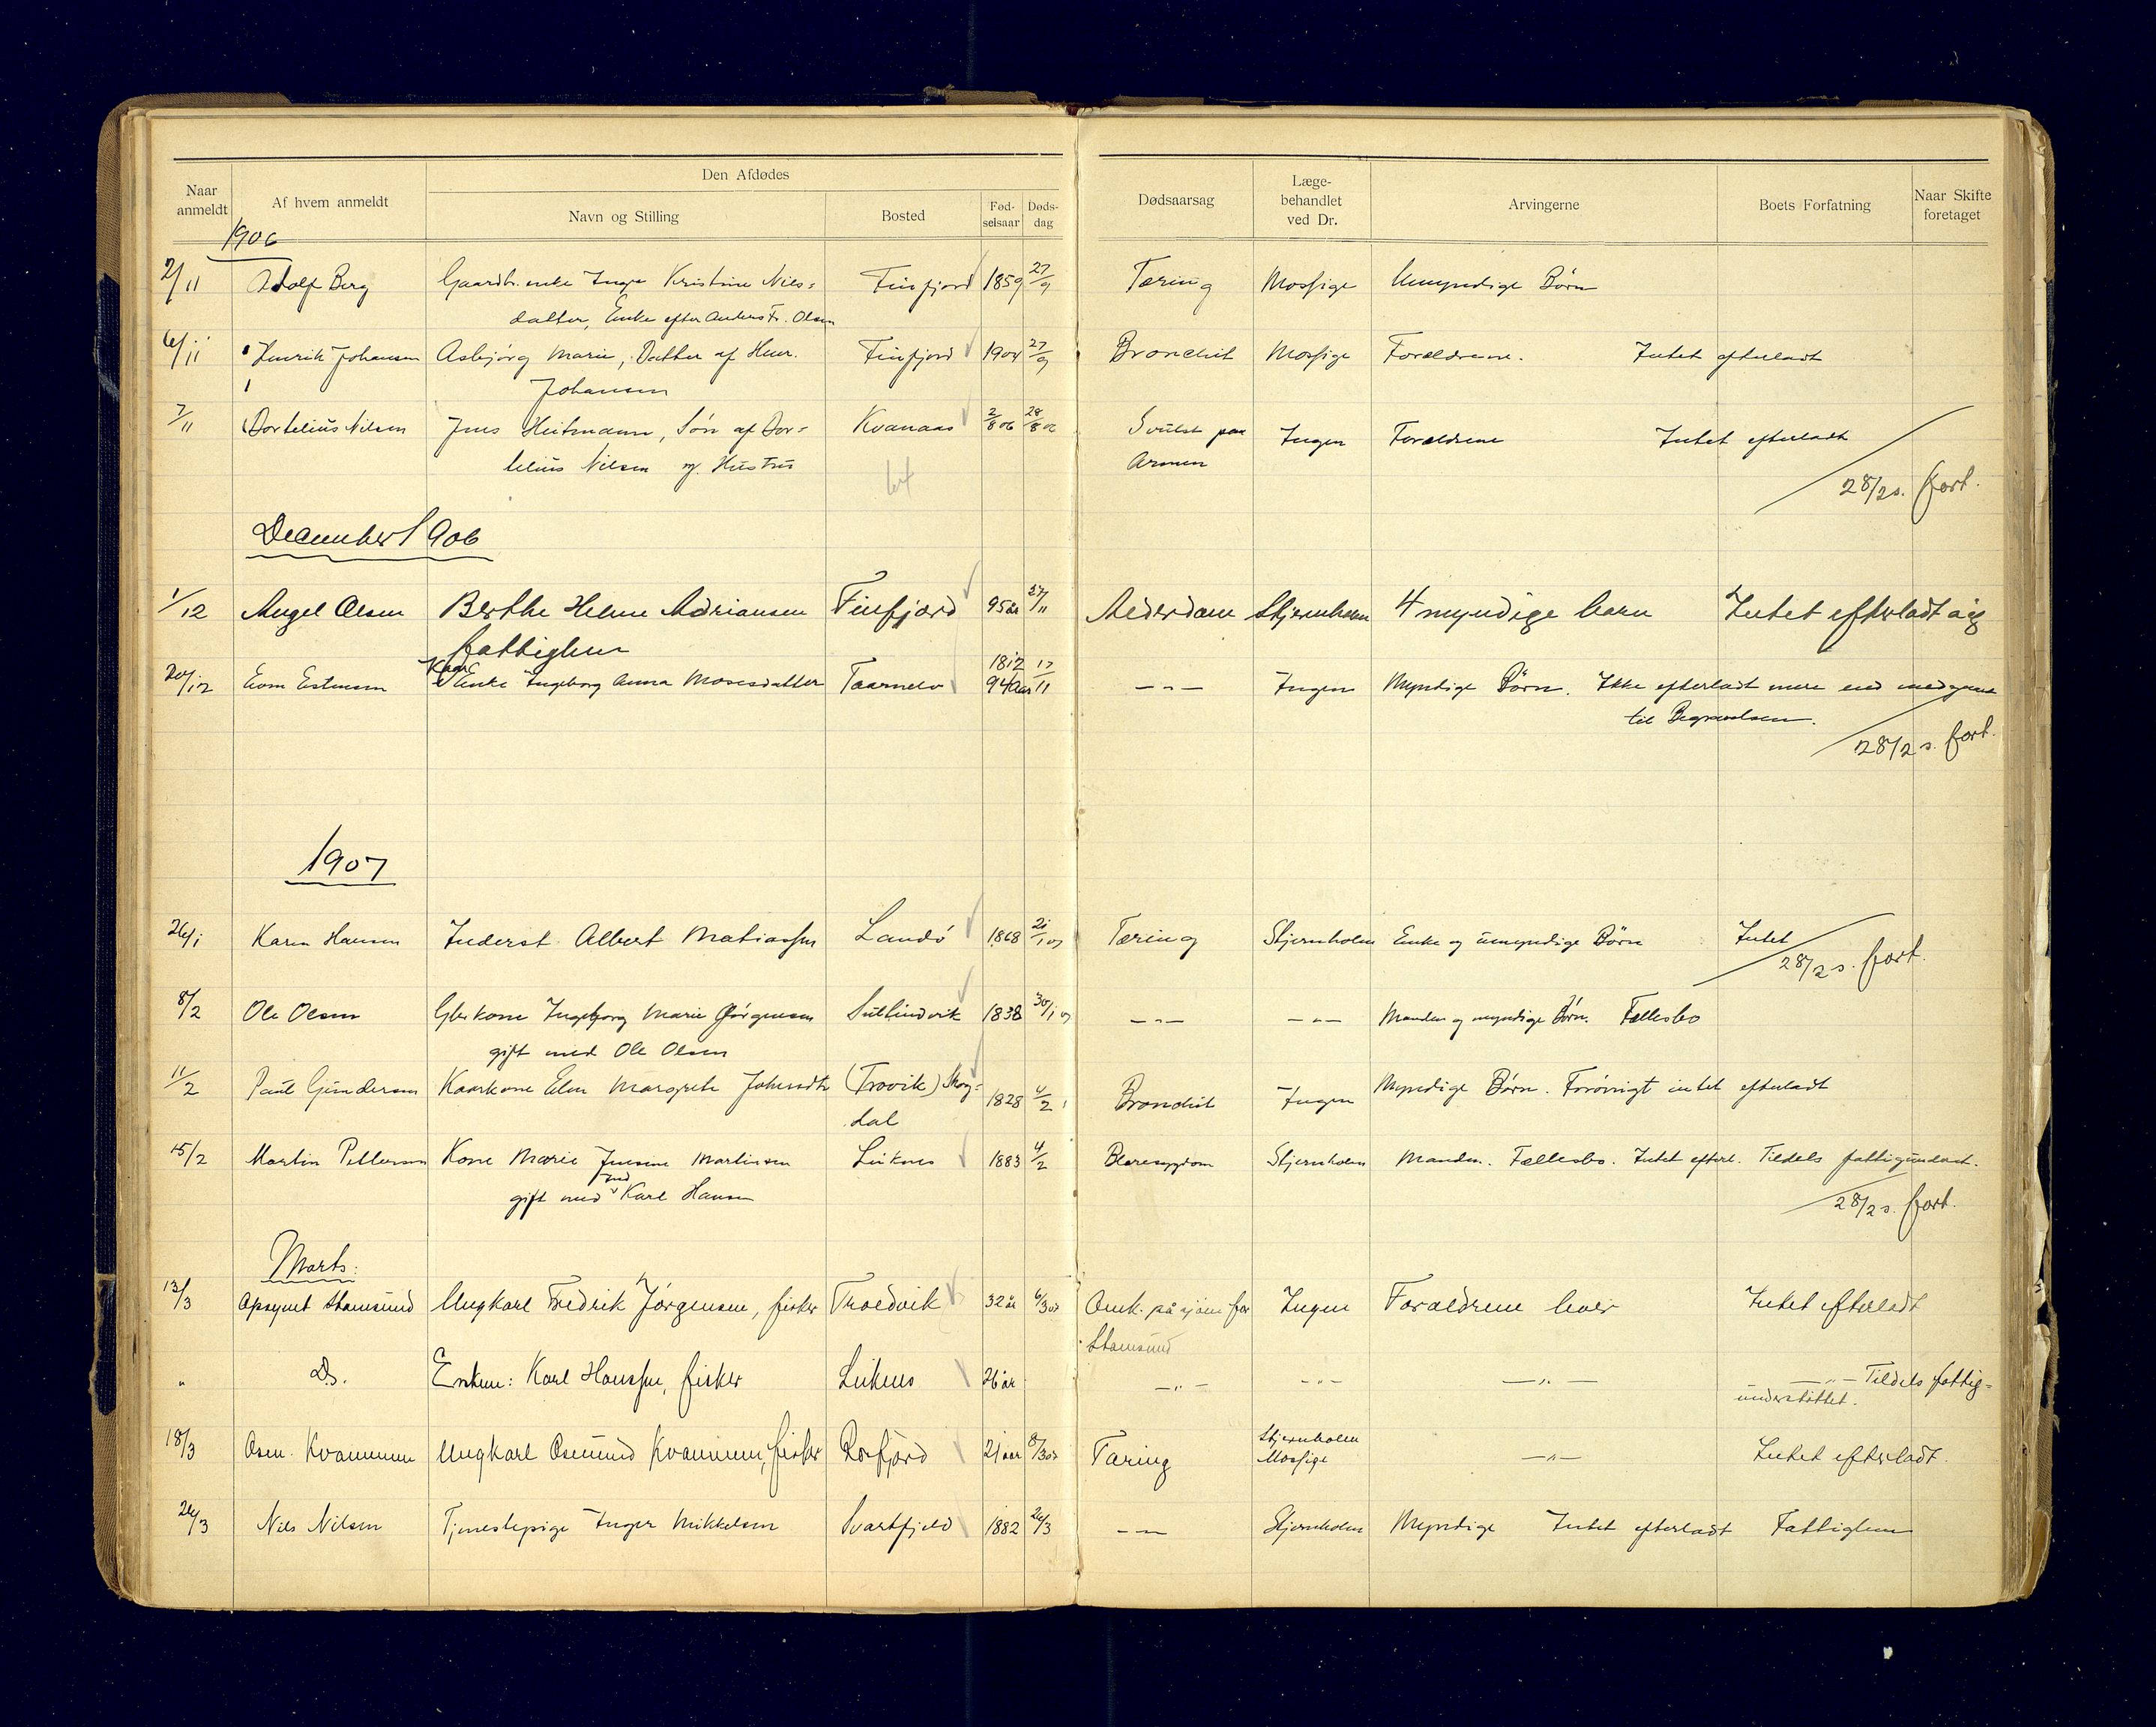 Naar anmeldt Af hvem anmeldt Den Afdødes Dødsaarsag Læge-behandlet ved Dr. Arvingerne Boets Forfatning Naar Skifte foretaget
Navn og Stilling Bosted Fød-selsaar Døds-dag
1906
2/11 Adolf Berg Gaardbr. enke Inger Kristine Nils= Finfjord 1859 27/9 Tæring Mossige Umyndige Børn
datter, Enke efter Anders Fr. Olsen
6/11 Henrik Johansen Asbjørg Marie, Datter af Henr. Finfjord 1904 27/9 Bronchit Mossige Forældrene. Intet efterladt
Johansen
7/11 Dortelius Nilsen Jens Heitmann, Søn af Dor= Kvanaas 2/8 06 28/8 06 Svulst paa Ingen Forældrene Intet efterladt
telius Nilsen og Hustru Armen
28/2 s. fort.
December 1906
1/12 Angel Olsen Berthe Helene Adriansen Finfjord 95 år 27/11 Alderdom Stjernholm 4 myndige børn Intet efterladt
fattiglem
20/12 Even Estensen Kaar Enke Ingeborg Anna Mosesdatter Taarnelv 1812 94 Aar 17/11 — " — Ingen Myndige Børn. Ikke efterladt mere end medgaar
til Begravelsen.
28/2 s. fort.
1907
26/1 Karen Hansen Inderst Albert Matiassen Sandø 1868 21/1 07 Tæring Stjernholm Enke og umyndige Børn Intet
28/2 s. fort.
8/2 Ole Olsen Gbrkone Ingeborg Marie Jørgensen Sultindvik 1838 30/1 07 — " — — " — Manden og myndige Børn. Fællesbo
gift med Ole Olsen
11/2 Paul Gundersen Kaarkone Elen Margrete Johnsdtr (Trovik) Skog= 1828 4/2 Bronchit Ingen Myndige Børn. Forøvrigt intet efterladt
dal
15/2 Martin Pettersen Kone Marie Jensine Martinsen Leiknes 1883 4/2 Blæresygdom Stjernholm Manden. Fællesbo. Intet efterl. Tildels fattigunderst.
gift med Karl Hansen
28/2 s. fort.
Marts:
13/3 Opsynet Stamsund Ungkarl Fredrik Jørgensen, fisker Troldvik 32 år 6/3 07 Omk. på sjøen for Ingen Forældrene lever Intet efterladt
Stamsund
" Ds. Enkem: Karl Hanssen, fisker Leiknes 26 år — " — — " — — " — — " — Tildels fattig=
understøttet.
18/3 Osm. Kvammen Ungkarl Osmund Kvammen, fisker Rosfjord 21 aar 8/3 07 Tæring Stjernholm Mossige — " — Intet efterladt.
26/3 Nils Nilsen Tjenestepige Inger Mikkelsen Svartfjeld 1882 26/3 — " — Stjernholm Myndige Intet efterladt Fattiglem